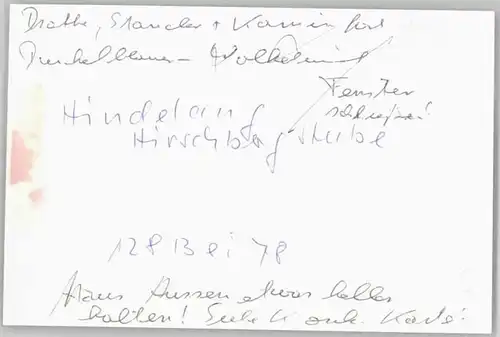 Drähte, Ständer + Kamin fort
Dunkelblauer - Wolkenlos
Fenster
schließen!
Hindelang
Hirschberg stube
128 B ei 78
Haus Aussen etwas heller
halten! Siehe Karte!